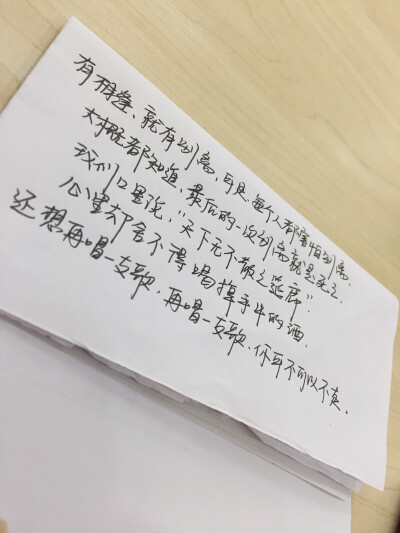 有相逢、就有别离,可是,每个人都害怕别离,
大概都知道,最后的一次别离就是死亡.
我们口里说,“天下无不散之筵席”.
心里却舍不得喝掉手中的酒.
还想再唱一支歌,再唱一支歌.你可不可以不走.